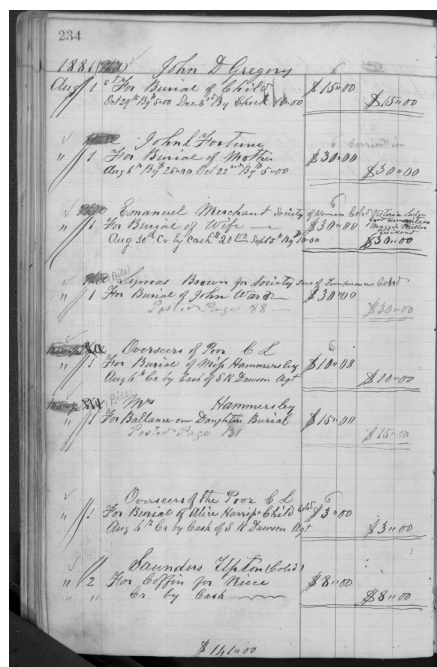 234
1881 John D Gregory
Aug 1st For Burial of Child $15"00
Oct 29th By $5.00 Dec 3rd By Check 10.00 $15"00
John Fortune
" 1 For Burial of Mother $30"00
Aug 6th By 25"00 Oct 22nd By 5"00 $30"00
Emanuel Merchant Society of Women Cold Victoria Lodge
" 1 For Burial of Wife $30"00
Aug 30th Cr by Cash 20 Sept 5th By 10"00 $30"00
Lymas Brown for Society Sons of Temperance Cold
" 1 For Burial of John Ward $30"00
Posted Page 88 $30"00
Overseers of Poor C L
" 1 For Burial of Miss Hammersley $10"00
Aug 6th Cr by Cash of S R Dawson Agt $10"00
Mrs Hammersley
" 1 For Ballance on Daughters Burial $15"00
Posted Page 131 $15"00
Overseers of the Poor C L
" 1 For Burial of Alice Harris Child Cold $3"00
Aug 6th Cr by Cash of S R Dawson Agt $3"00
Saunders Upton (Cold)
" 2 For Coffin for Niece $8"00
" " Cr by Cash $8"00
$141"00